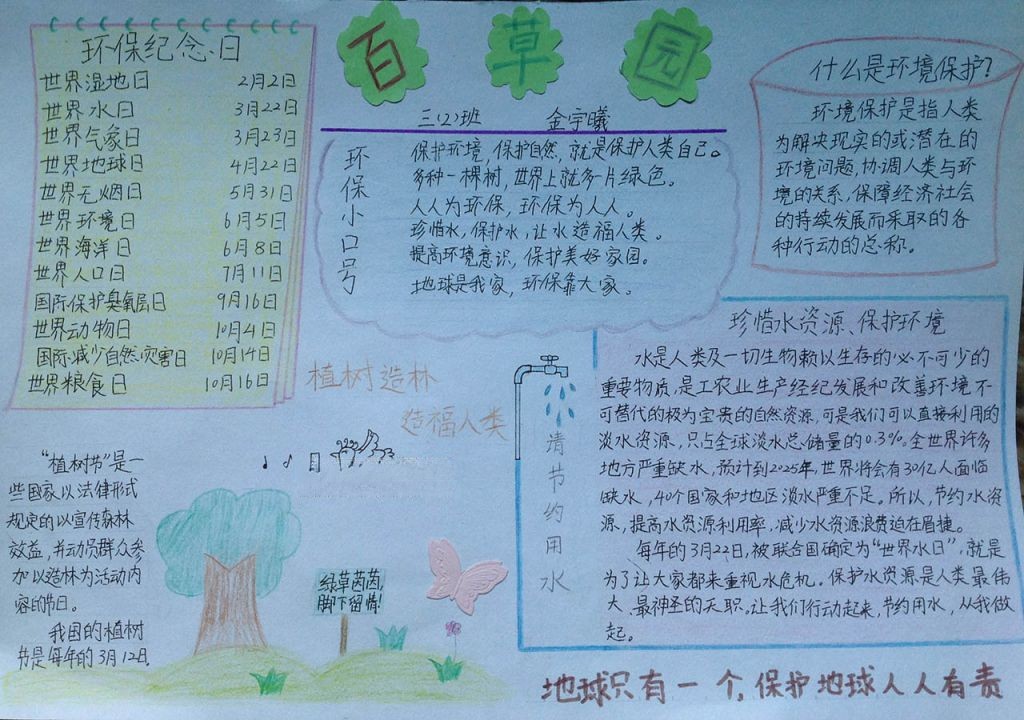 百草园
三(2)班 金宇曦
环保纪念日
世界湿地日 2月2日
世界水日 3月22日
世界气象日 3月23日
世界地球日 4月22日
世界无烟日 5月31日
世界环境日 6月5日
世界海洋日 6月8日
世界人口日 7月11日
国际保护臭氧层日 9月16日
世界动物日 10月4日
国际减少自然灾害日 10月14日
世界粮食日 10月16日
环保小口号
保护环境,保护自然,就是保护人类自己。
多种一棵树,世界上就多一片绿色。
人人为环保,环保为人人。
珍惜水,保护水,让水造福人类。
提高环境意识,保护美好家园。
地球是我家,环保靠大家。
什么是环境保护?
环境保护是指人类
为解决现实的或潜在的
环境问题,协调人类与环
境的关系,保障经济社会
的持续发展而采取的各
种行动的总称。
植树造林
造福人类
“植树节”是一
些国家以法律形式
规定的以宣传森林
效益,并动员群众参
加以造林为活动内
容的节日。
我国的植树
节是每年的3月12日。
绿草茵茵,
脚下留情!
请节约用水
珍惜水资源、保护环境
水是人类及一切生物赖以生存的必不可少的
重要物质,是工农业生产经纪发展和改善环境不
可替代的极为宝贵的自然资源,可是我们可以直接利用的
淡水资源,只占全球淡水总储量的0.3%。全世界许多
地方严重缺水,预计到2025年,世界将会有30亿人面临
缺水,40个国家和地区淡水严重不足。所以,节约水资
源,提高水资源利用率,减少水资源浪费迫在眉捷。
每年的3月22日,被联合国确定为“世界水日”,就是
为了让大家都来重视水危机。保护水资源是人类最伟
大、最神圣的天职。让我们行动起来,节约用水,从我做
起。
地球只有一个,保护地球人人有责